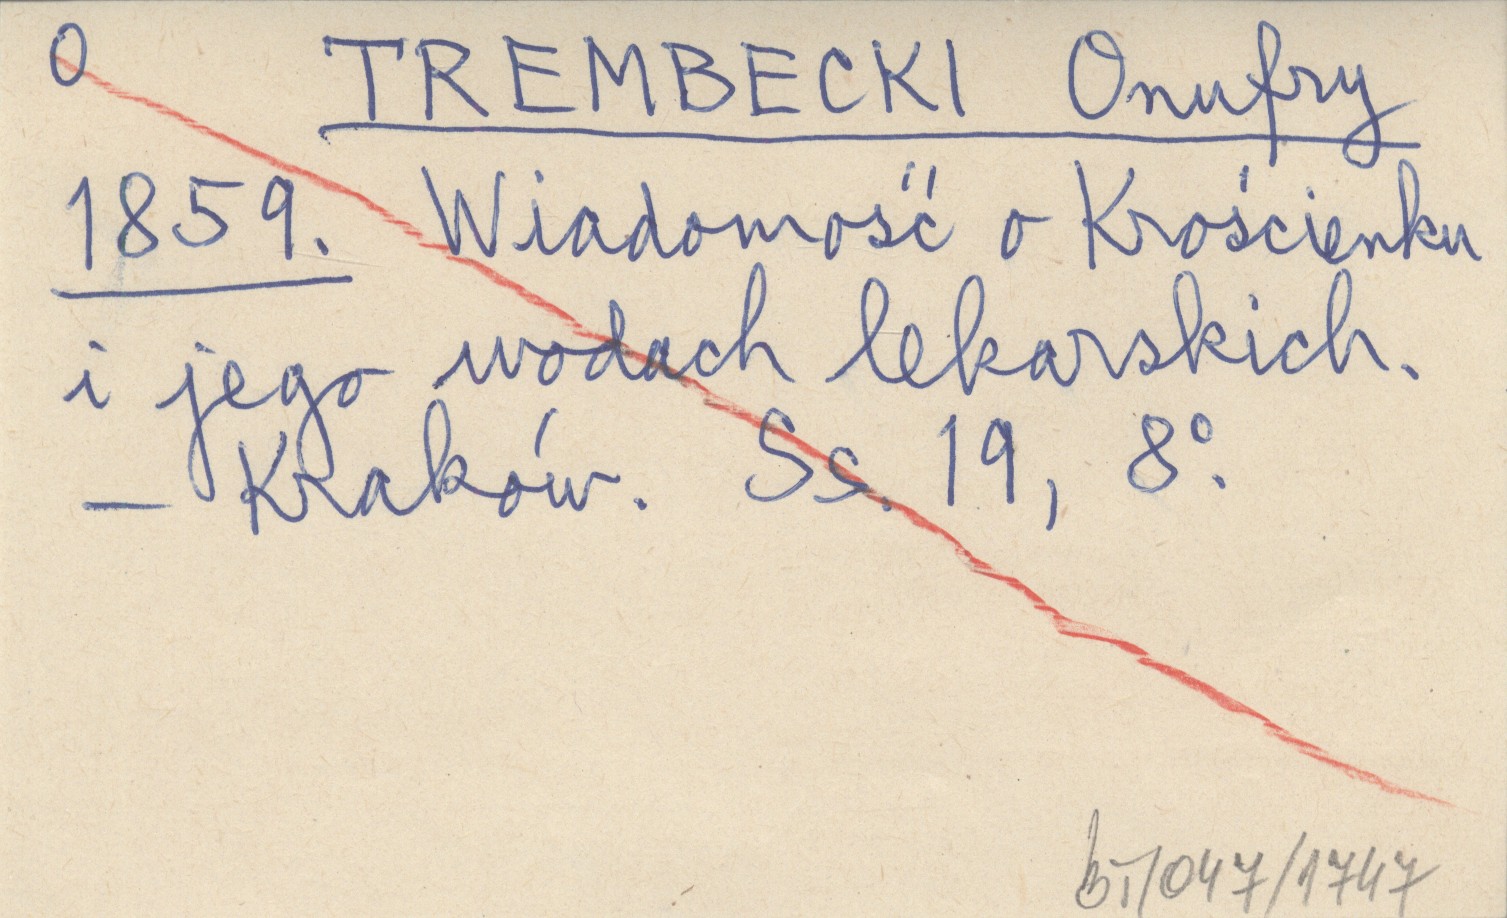 O TREMBECKI Onufry
1859. Wiadomość o Krościenku
i jego wodach lekarskich.
— Kraków. Ss. 19, 8°.
bī/047/1747